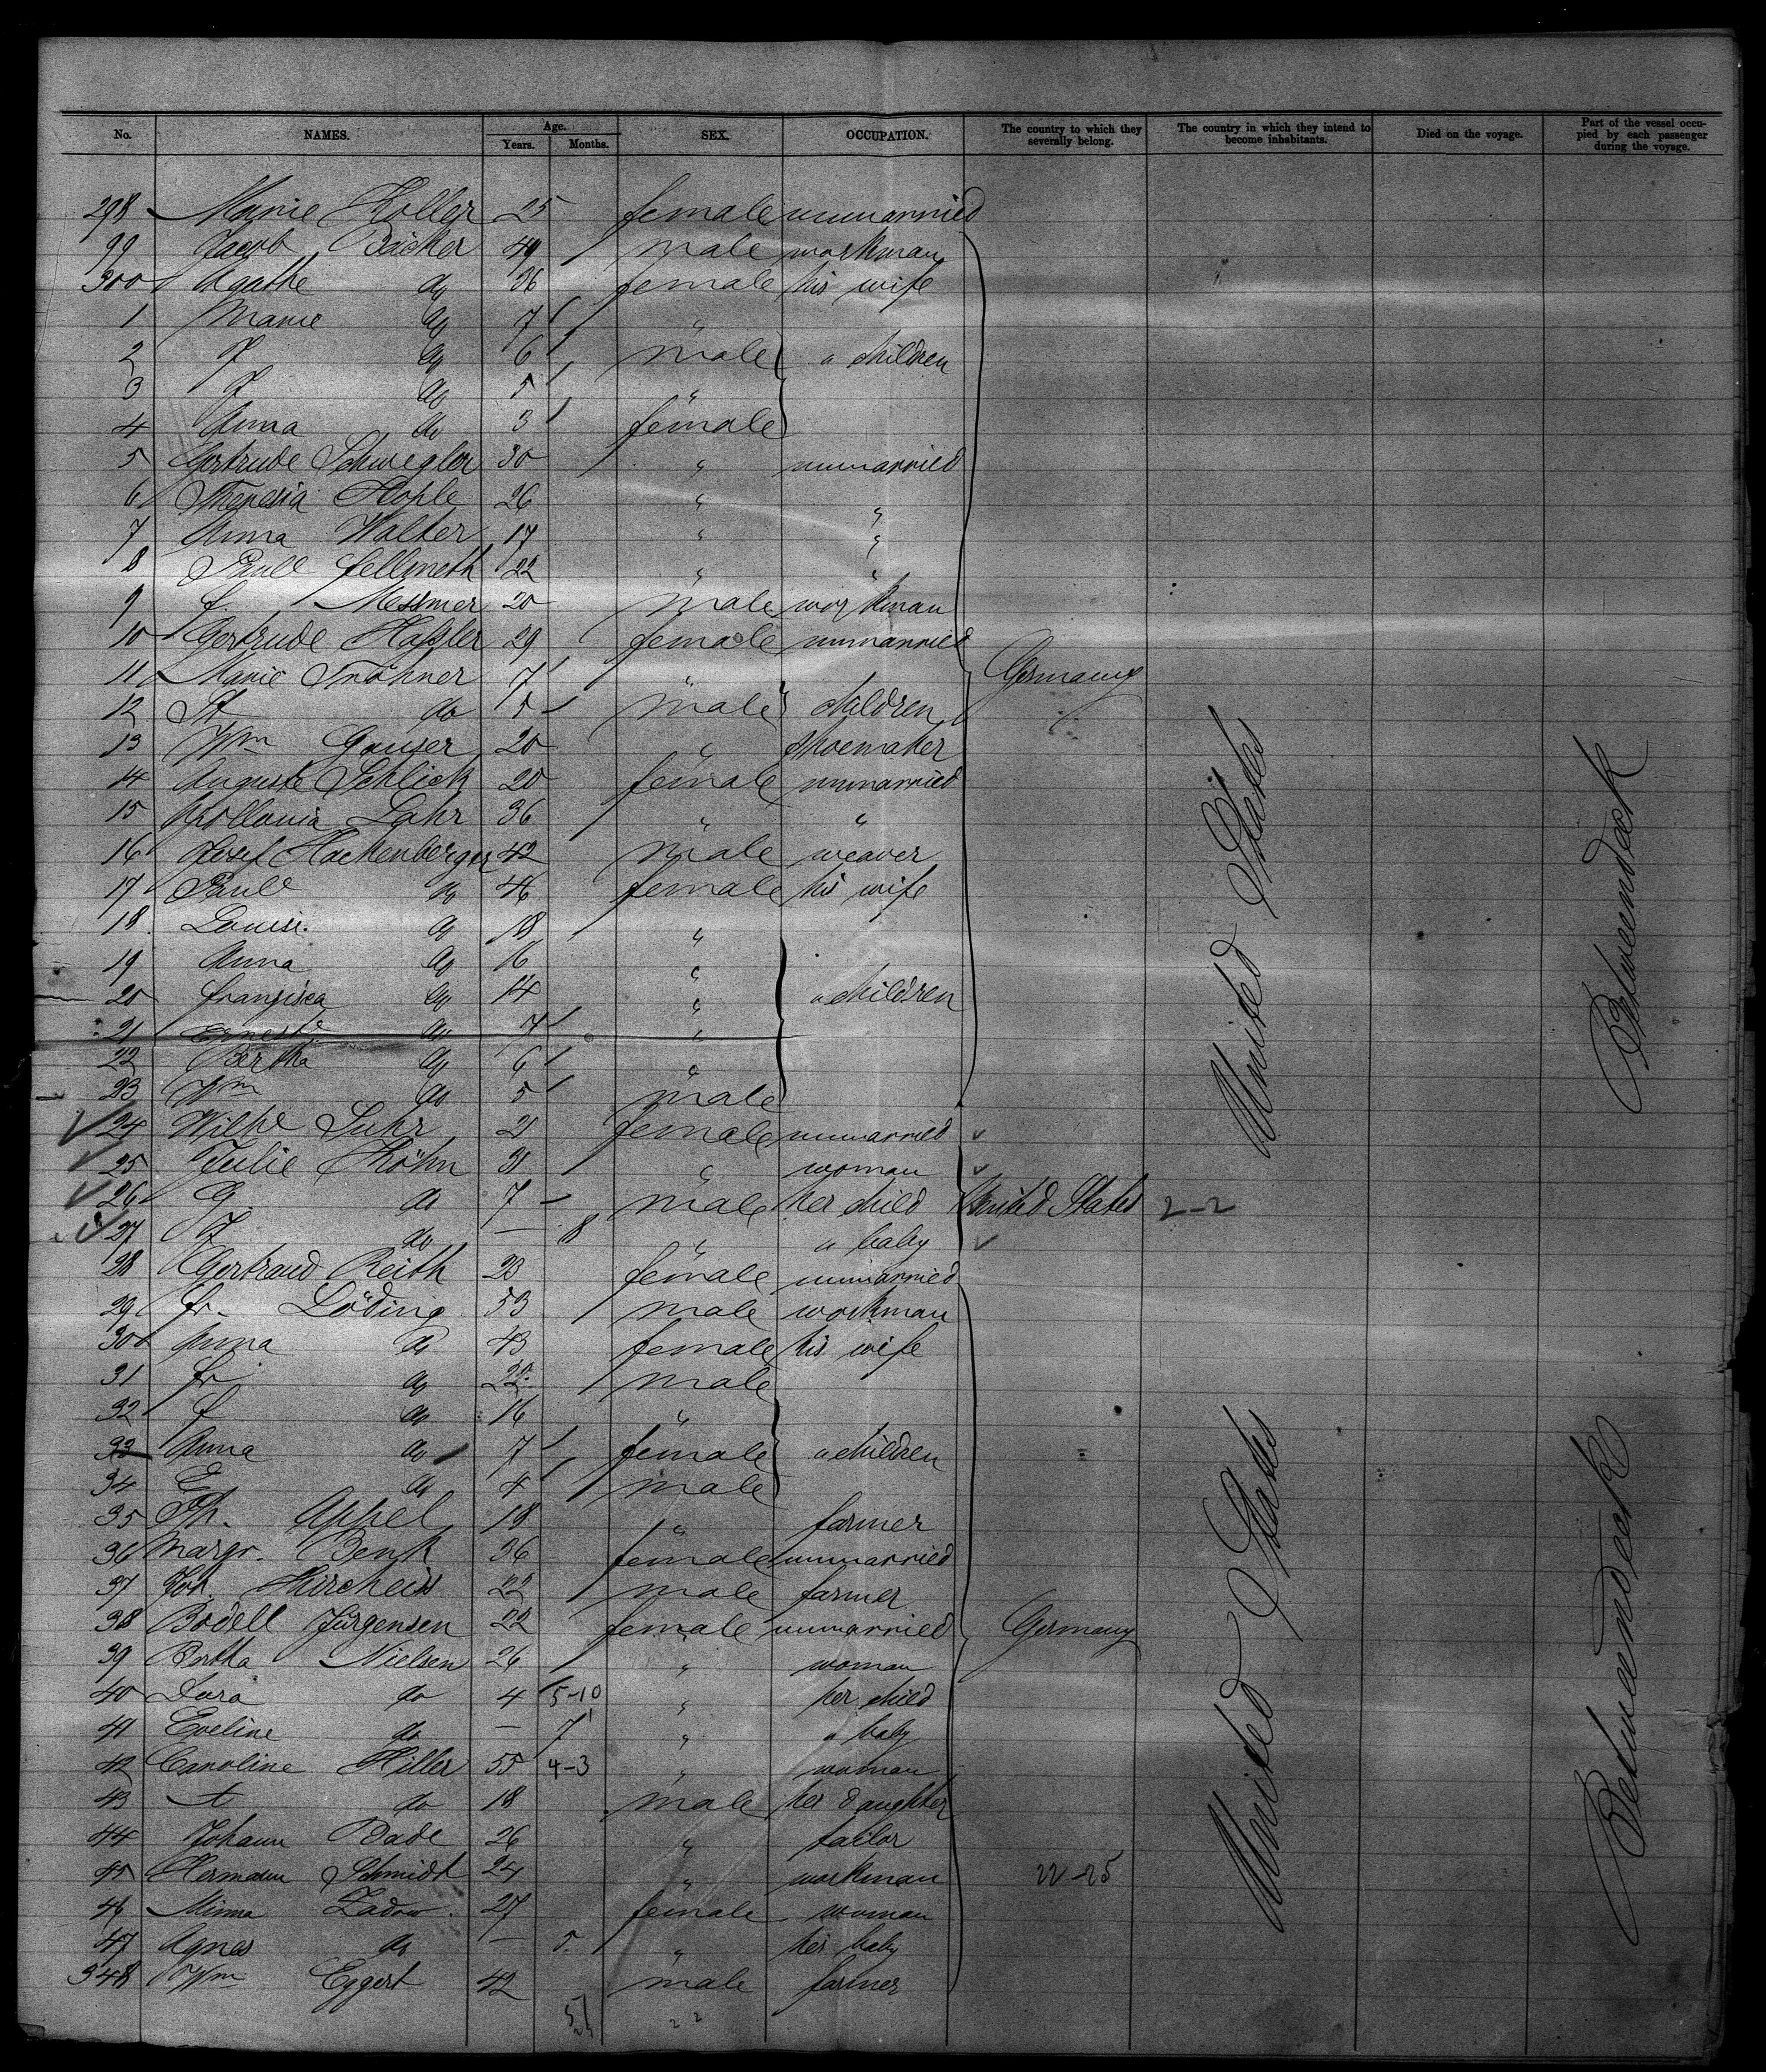 No. NAMES. Age. Years. Months. SEX. OCCUPATION. The country to which they severally belong. The country in which they intend to become inhabitants. Died on the voyage. Part of the vessel occupied by each passenger during the voyage.
298 Marie Holler 25 female unmarried
99 Jacob Bäcker 49 male workman
300 Agathe do 36 female his wife
1 Marie do 7 "
2 J do 6 male " children
3 J do 5 "
4 Anna do 3 female
5 Gertrude Schwegler 30 " unmarried
6 Theresia Hople 26 " "
7 Anna Walter 17 " "
8 Paul Fellmeth 22 " "
9 f. Messmer 20 male workman
10 Gertrude Hassler 29 female unmarried
11 Marie Fröhner 7 " Germany
12 St do 5 male children
13 Wm Gauser 20 " shoemaker
14 Auguste Schlick 20 female unmarried
15 Apollonia Lahr 36 " "
16 Josef Hackenberger 42 male weaver
17 Paul do 46 female his wife
18 Louise do 18 "
19 Anna do 16 "
20 Franzisca do 14 " " children
21 Ernest do 7 "
22 Bertha do 6 "
23 Wm do 5 male
24 Wilhe Suhr 21 female unmarried
25 Julie Köhn 31 " woman
26 G do 7 male her child United States 2-2
27 J do — 8 " " baby
28 Gertraud Reith 23 female unmarried
29 fr. Löding 53 male workman
30 Anna do 43 female his wife
31 fr do 22 male
32 f do 16 "
33 Anna do 7 female " children
34 E do 4 male
35 Th. Appel 18 " farmer
36 Margr. Benk 36 female unmarried
37 Joh. Hircheiss 22 male farmer
38 Bodell Jürgensen 22 female unmarried Germany
39 Bertha Nielsen 26 " woman
40 Dora do 4 5-10 " her child
41 Eveline do — 7 " " baby
42 Caroline Hiller 55 4-3 " woman
43 A do 18 male her daughter
44 Johann Bade 26 " tailor
45 Hermann Schmidt 24 " workman 22-25
46 Minna Zadow 27 female woman
47 Agnes do — 5. " her baby
348 Wm Eggert 42 male farmer
United States
Betweendeck
United States
Betweendeck